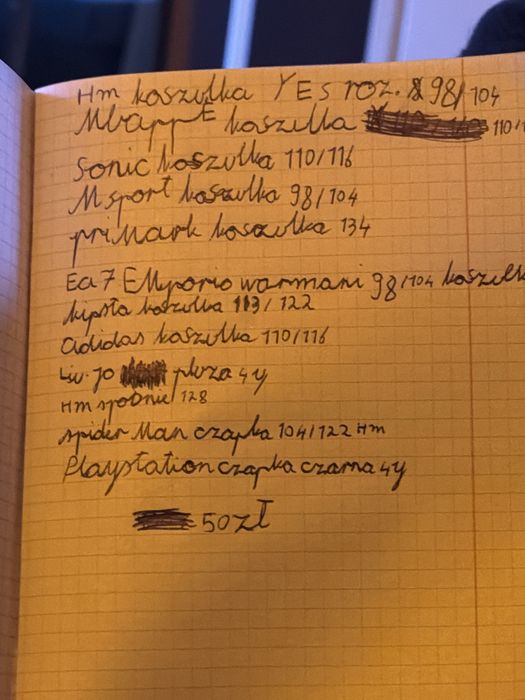 Hm koszulka YES roz. 98/104
Mbappe koszulka 110/1
Sonic koszulka 110/116
M sport koszulka 98/104
priMark koszulka 134
Ea7 EMporio warmani 98/104 koszulk
kipsta koszulka 113/122
adidas koszulka 110/116
Liu-Jo pluza 4y
Hm spodnie 128
spider Man czapka 104/122 Hm
Playstation czapka czarna 4y
50zł